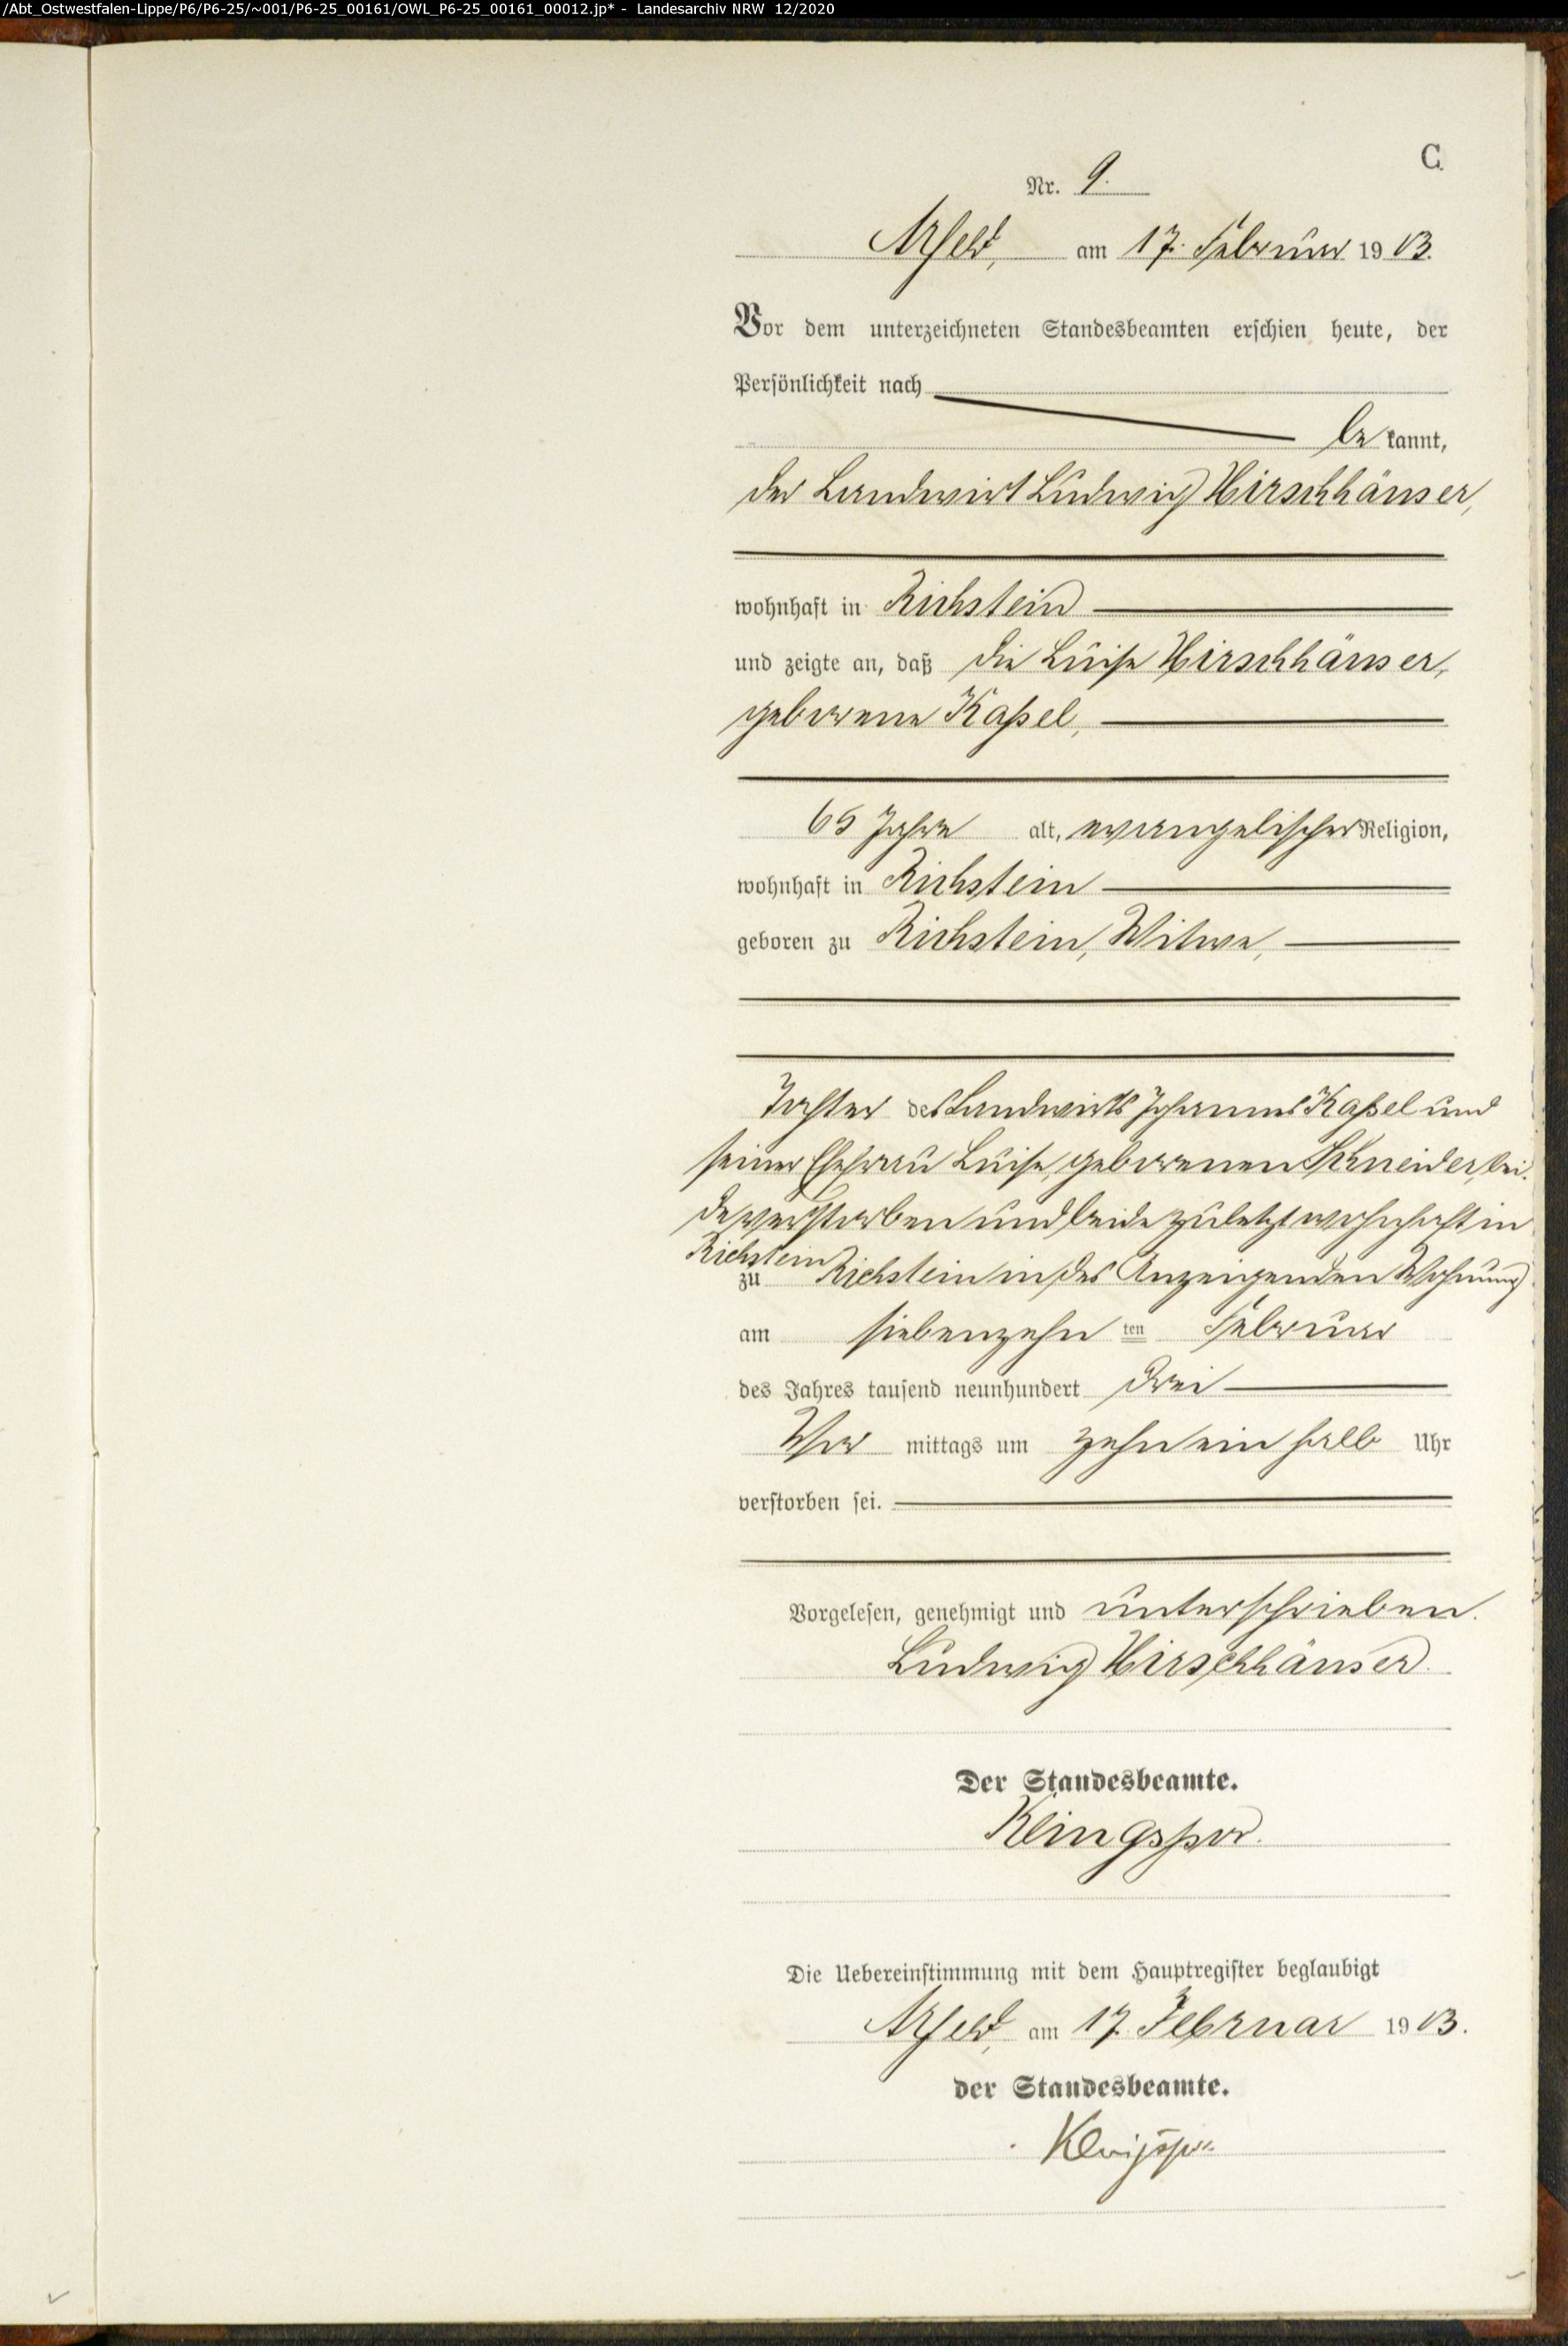 /Abt_Ostwestfalen-Lippe/P6/P6-25/~001/P6-25_00161/OWL_P6-25_00161_00012.jp* - Landesarchiv NRW 12/2020
C
Nr. 9.
Arfeld, am 17. Februar 1903.
Vor dem unterzeichneten Standesbeamten erschien heute, der
Persönlichkeit nach
be kannt,
der Landwirt Ludwig Hirschhäuser,
wohnhaft in Richstein
und zeigte an, daß die Luise Hirschhäuser,
geborene Kaßel,
65 Jahre alt, evangelischer Religion,
wohnhaft in Richstein
geboren zu Richstein, Witwe,
Tochter des Landwirts Johannes Kaßel und
seiner Ehefrau Luise, geborenen Schneider, bei-
de verstorben und beide zuletzt wohnhaft in
Richstein
zu Richstein in des Anzeigenden Wohnung
am siebenzehn ten Februar
des Jahres tausend neunhundert drei
Vor mittags um zehn ein halb Uhr
verstorben sei.
Vorgelesen, genehmigt und unterschrieben.
Ludwig Hirschhäuser.
Der Standesbeamte.
Klingspor.
Die Uebereinstimmung mit dem Hauptregister beglaubigt
Arfeld, am 17. Februar 1903.
der Standesbeamte.
Klingspor